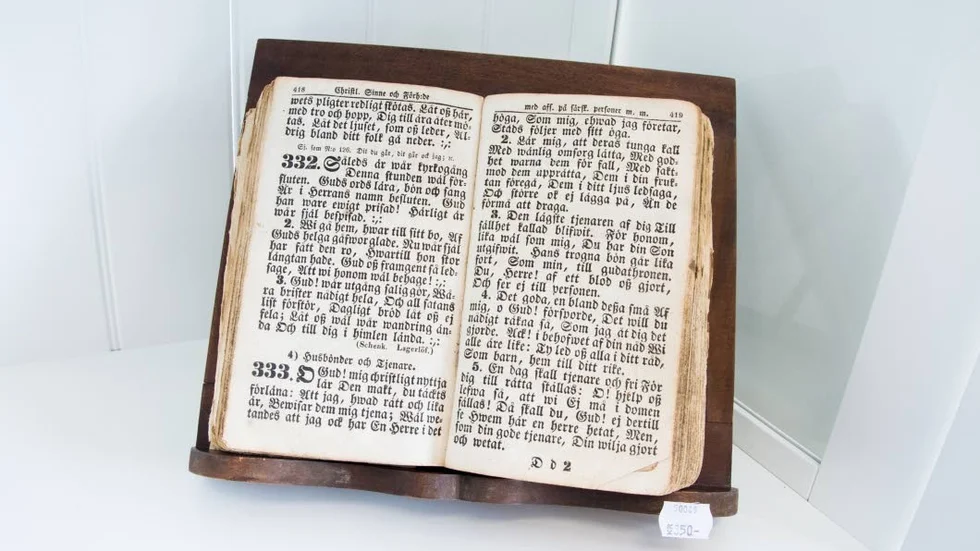 418 Christl. Sinne och Förh:de
wets pligter redligt skötas. Låt oß här,
med tro och hopp, Dig till ära åter mö-
tas. Låt det ljuset, som oß leder, Al-
drig bland ditt folk gå neder. :,:
Sj. sem N:o 126. Dit du går, dit går ock jag; n.
332. Således är wår kyrkogång
Denna stunden wäl för-
fluten. Guds ords lära, bön och sang
Är i Herrans namn besluten. Gud
han ware ewigt prisad! Härligt är
wår själ bespisad. :,:
2. Wi gå hem, hwar till sitt bo, Af
Guds helga gåfwor glade. Nu wår själ
har fått den ro, Hwartill hon stor
längtan hade. Gud oß framgent så led-
sage, Att wi honom wäl behage! :,:
3. Gud! wår utgång salig gör, Wå-
ra brister nådigt hela, Och all satans
list förstör, Dagligt bröd låt oß ej
fela; Låt oß wäl wår wandring än-
da Och till dig i himlen lända. :,:
(Schenk. Lagerlöf.)
4) Husbönder och Tjenare.
333. O Gud! mig christligt nyttja
lär Den makt, du täckts
förläna: Att jag, hwad rätt och lika
är, Bewisar dem mig tjena; Wäl we-
tandes att jag ock har En Herre i det
med aff. på särsk. personer m. m. 419
höga, Som mig, ehwad jag företar,
Städs följer med sitt öga.
2. Lär mig, att deras tunga kall
Med wänlig omsorg lätta, Med god-
het warna dem för fall, Med sakt-
mod dem upprätta, Dem i din fruk-
tan föregå, Dem i ditt ljus ledsaga,
Och större ok ej lägga på, Än de
förmå att draga.
3. Den lägste tjenaren af dig Till
sällhet kallad blifwit. För honom,
lika wäl som mig, Du har din Son
utgifwit. Hans trogna bön går lika
fort, Som min, till gudathronen.
Du, Herre! af ett blod oß gjort,
Och ser ej till personen.
4. Det goda, en bland deßa små Af
mig, o Gud! försporde, Det will du
nådigt räkna så, Som jag åt dig det
gjorde. Ack! i behofwet af din nåd Wi
alle äre like: Ty led oß alla i ditt råd,
Som barn, hem till ditt rike.
5. En dag skall tjenare och fri För
dig till rätta ställas: O! hjelp oß
lefwa så, att wi Ej må i domen
fällas! Då skall du, Gud! ej dertill
se Hwem här en herre hetat, Men,
som din gode tjenare, Din wilja gjort
och wetat.
D d 2
350-